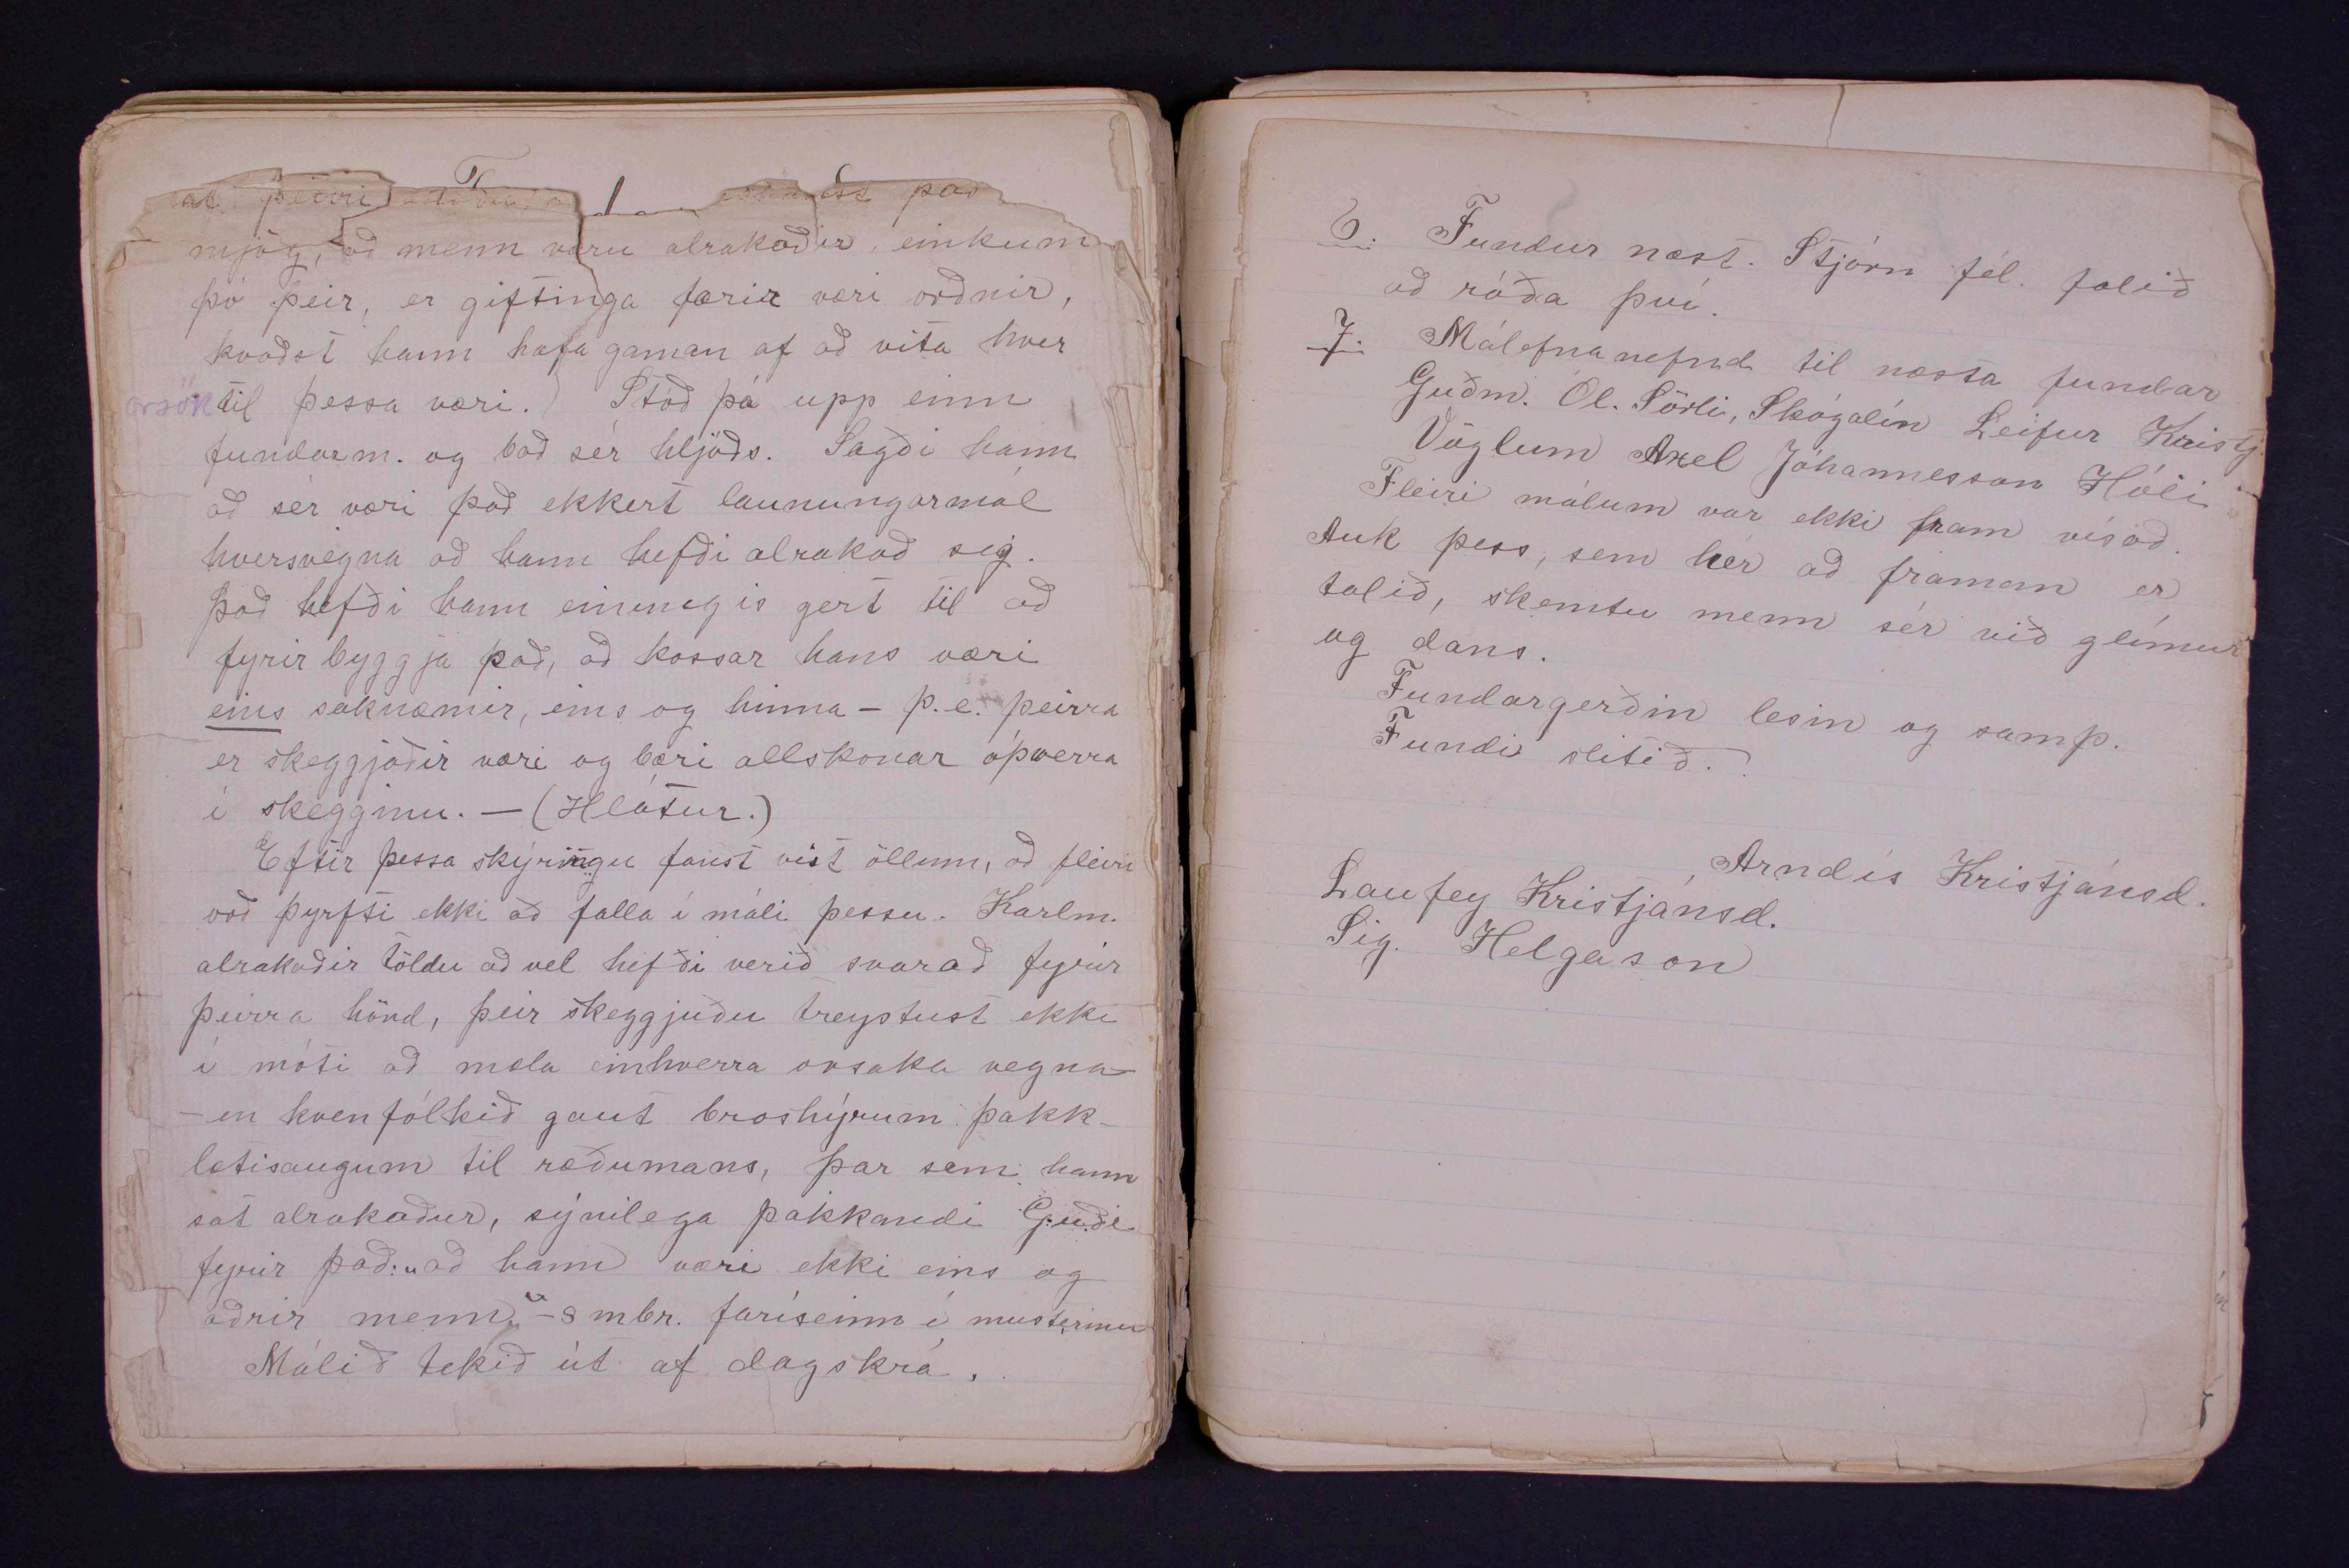 af þeirri það
mjög, að menn væru alrakaðir, einkum
þó þeir, er giftinga færir væri orðnir,
kvaðst hann hafa gaman af að vita hver
orsök til þessa væri. Stóð þá upp einn
fundarm. og bað sér hljóðs. Sagði hann
að sér væri það ekkert launungarmál
hversvegna að hann hefði alrakað sig.
Það hefði hann einungis gert til að
fyrirbyggja það, að kossar hans væri
eins saknæmir, eins og hinna – þ.e. þeirra
er skeggjaðir væri og bæri allskonar óþverra
í skegginu. – (Hlátur.)
Eftir þessa skýringu fanst víst öllum, að fleiri
orð þyrfti ekki að falla í máli þessu. Karlm.
alrakaðir töldu að vel hefði verið svarað fyrir
þeirra hönd, þeir skeggjuðu treystust ekki
í móti að mæla einhverra orsaka vegna
– en kvenfólkið gaut broshýrum þakk-
lætisaugum til ræðumans, þar sem hann
sat alrakaður, sýnilega þakkandi Guði
fyrir það: „að hann væri ekki eins og
aðrir menn“ – smbr. faríseinn í musterinu
Málið tekið út af dagskrá.
6. Fundur næst. Stjórn fél. falið
að ráða því.
7. Málefnanefnd til næsta fundar
Guðm. Ól. Sörli, Skógalín Leifur Kristj.
Vöglum Axel Jóhannesson Hóli
Fleiri málum var ekki fram vísað.
Auk þess, sem hér að framan er
talið, skemtu menn sér við glímur
og dans.
Fundargerðin lesin og samþ.
Fundi slitið.
Arndís Kristjánsd.
Laufey Kristjánsd.
Sig. Helgason